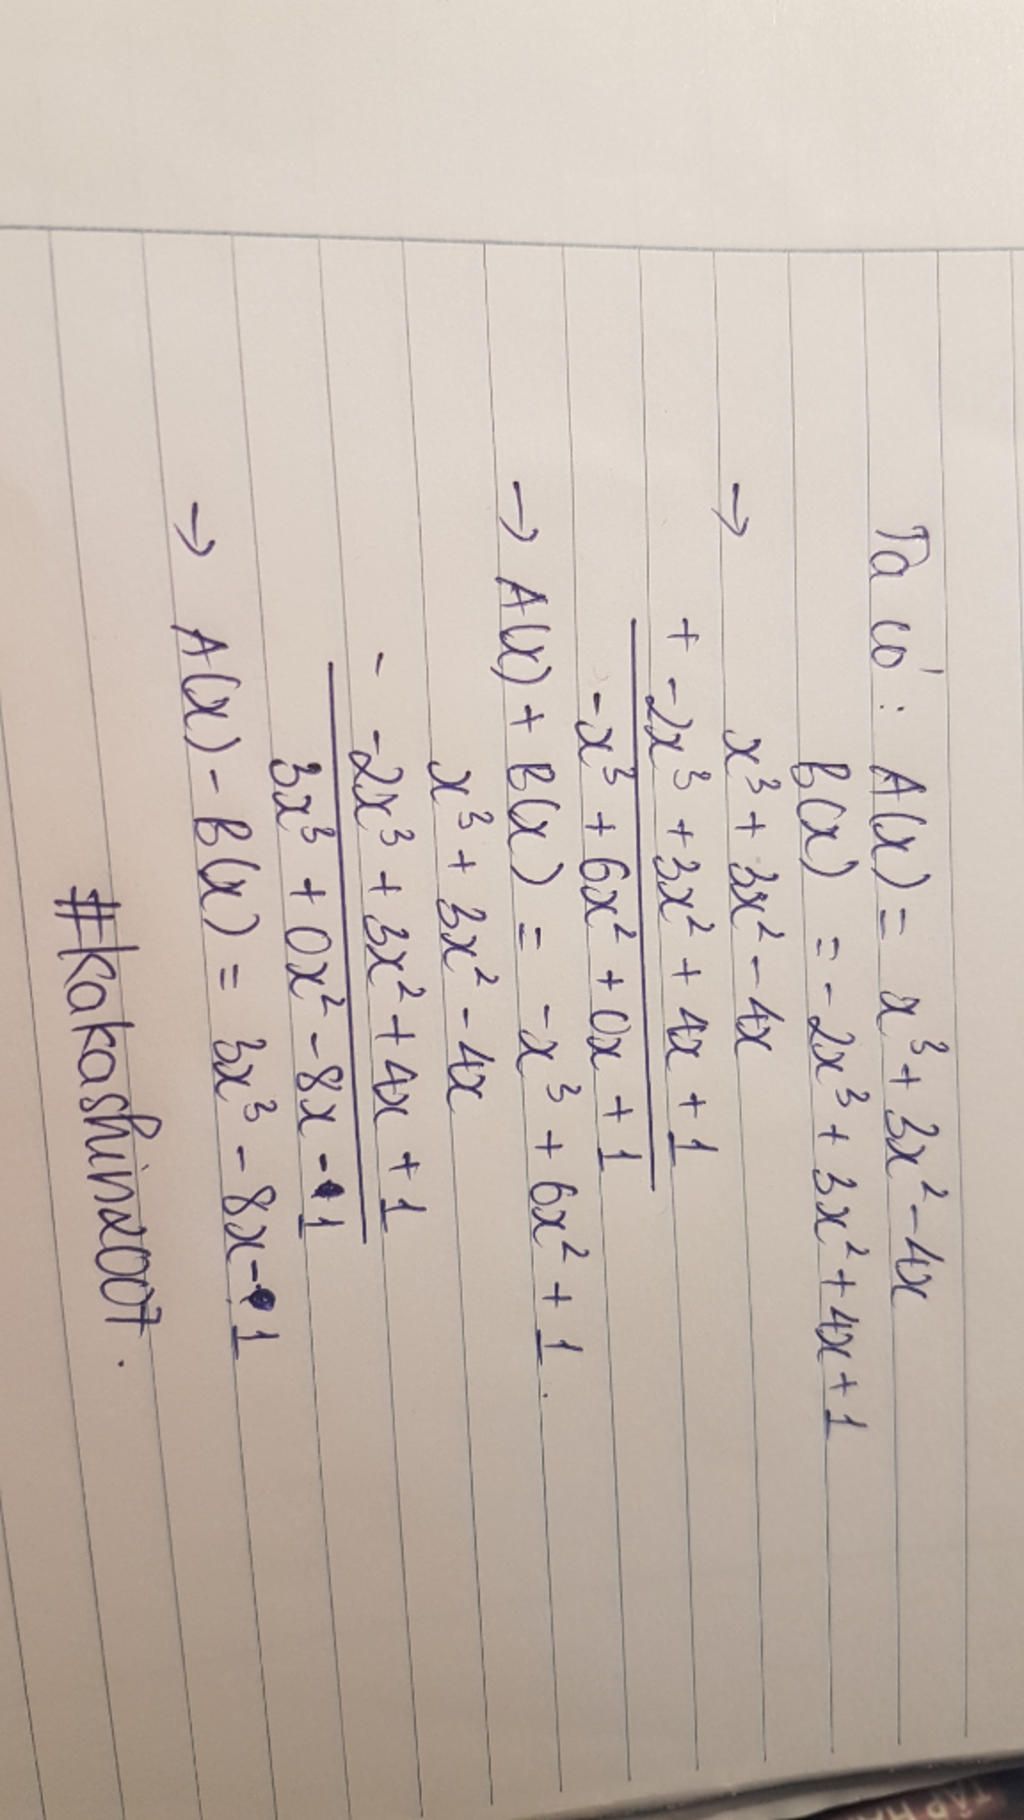 Ta có: A(x) = x³ + 3x² - 4x
B(x) = -2x³ + 3x² + 4x + 1
→ x³ + 3x² - 4x
+ -2x³ + 3x² + 4x + 1
-x³ + 6x² + 0x + 1
→ A(x) + B(x) = -x³ + 6x² + 1.
x³ + 3x² - 4x
- -2x³ + 3x² + 4x + 1
3x³ + 0x² - 8x - 1
→ A(x) - B(x) = 3x³ - 8x - 1
#kakashin2007.